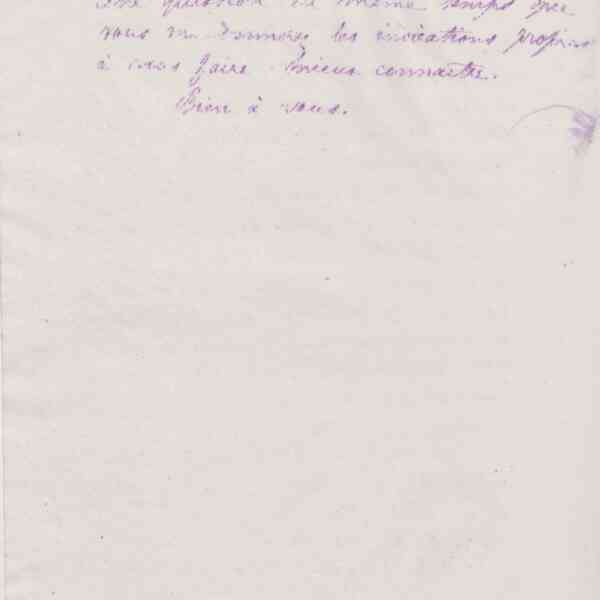 question en même temps que
vous me donnerez les indications propres
à vous faire mieux connaître.
Bien à vous.